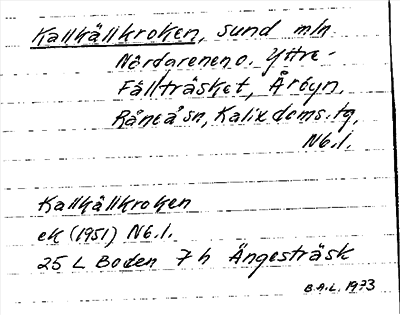 Kallhällkroken, sund mln
Nördarenen o. Yttre-
Fällträsket, Åröyn,
Råneå sn, Kalix doms.tg,
Nb.l.
Kallhällkroken
ek (1951) Nb.l.
25 L Boden 7 h Ängesträsk
B.A.L. 1973